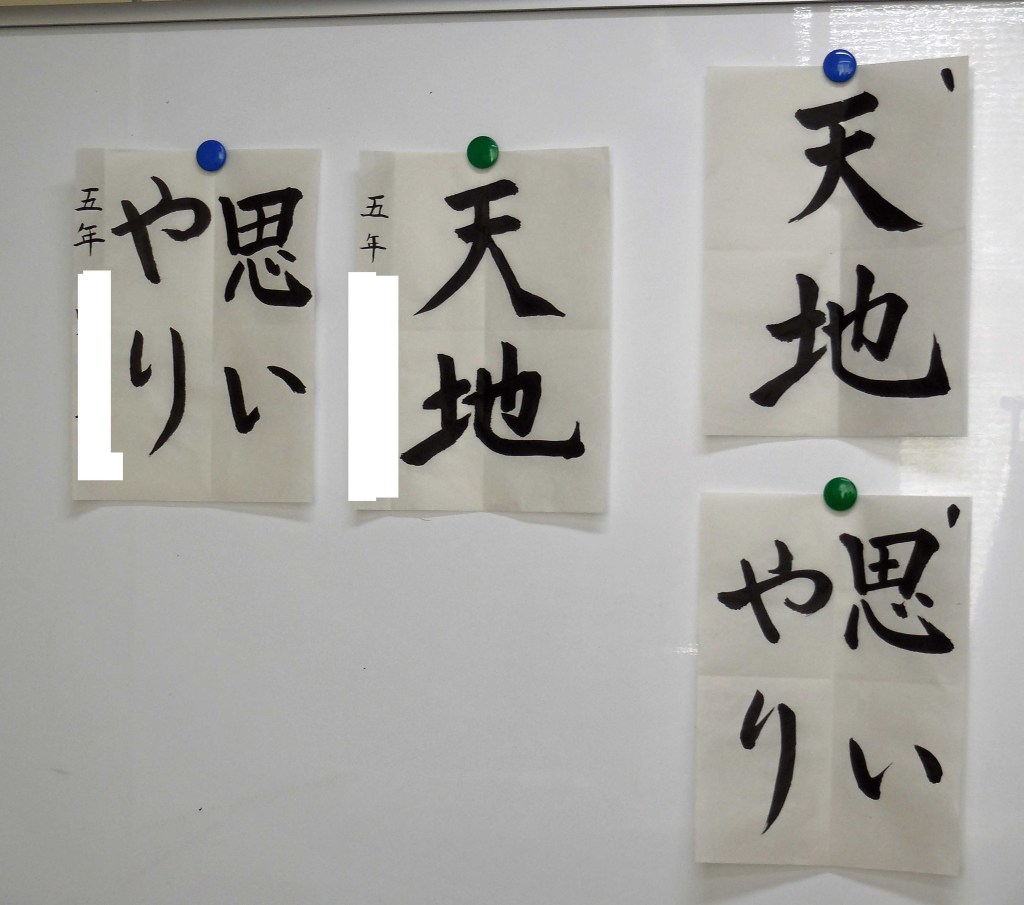 思い
やり
五年
天地
五年
天地
思い
やり